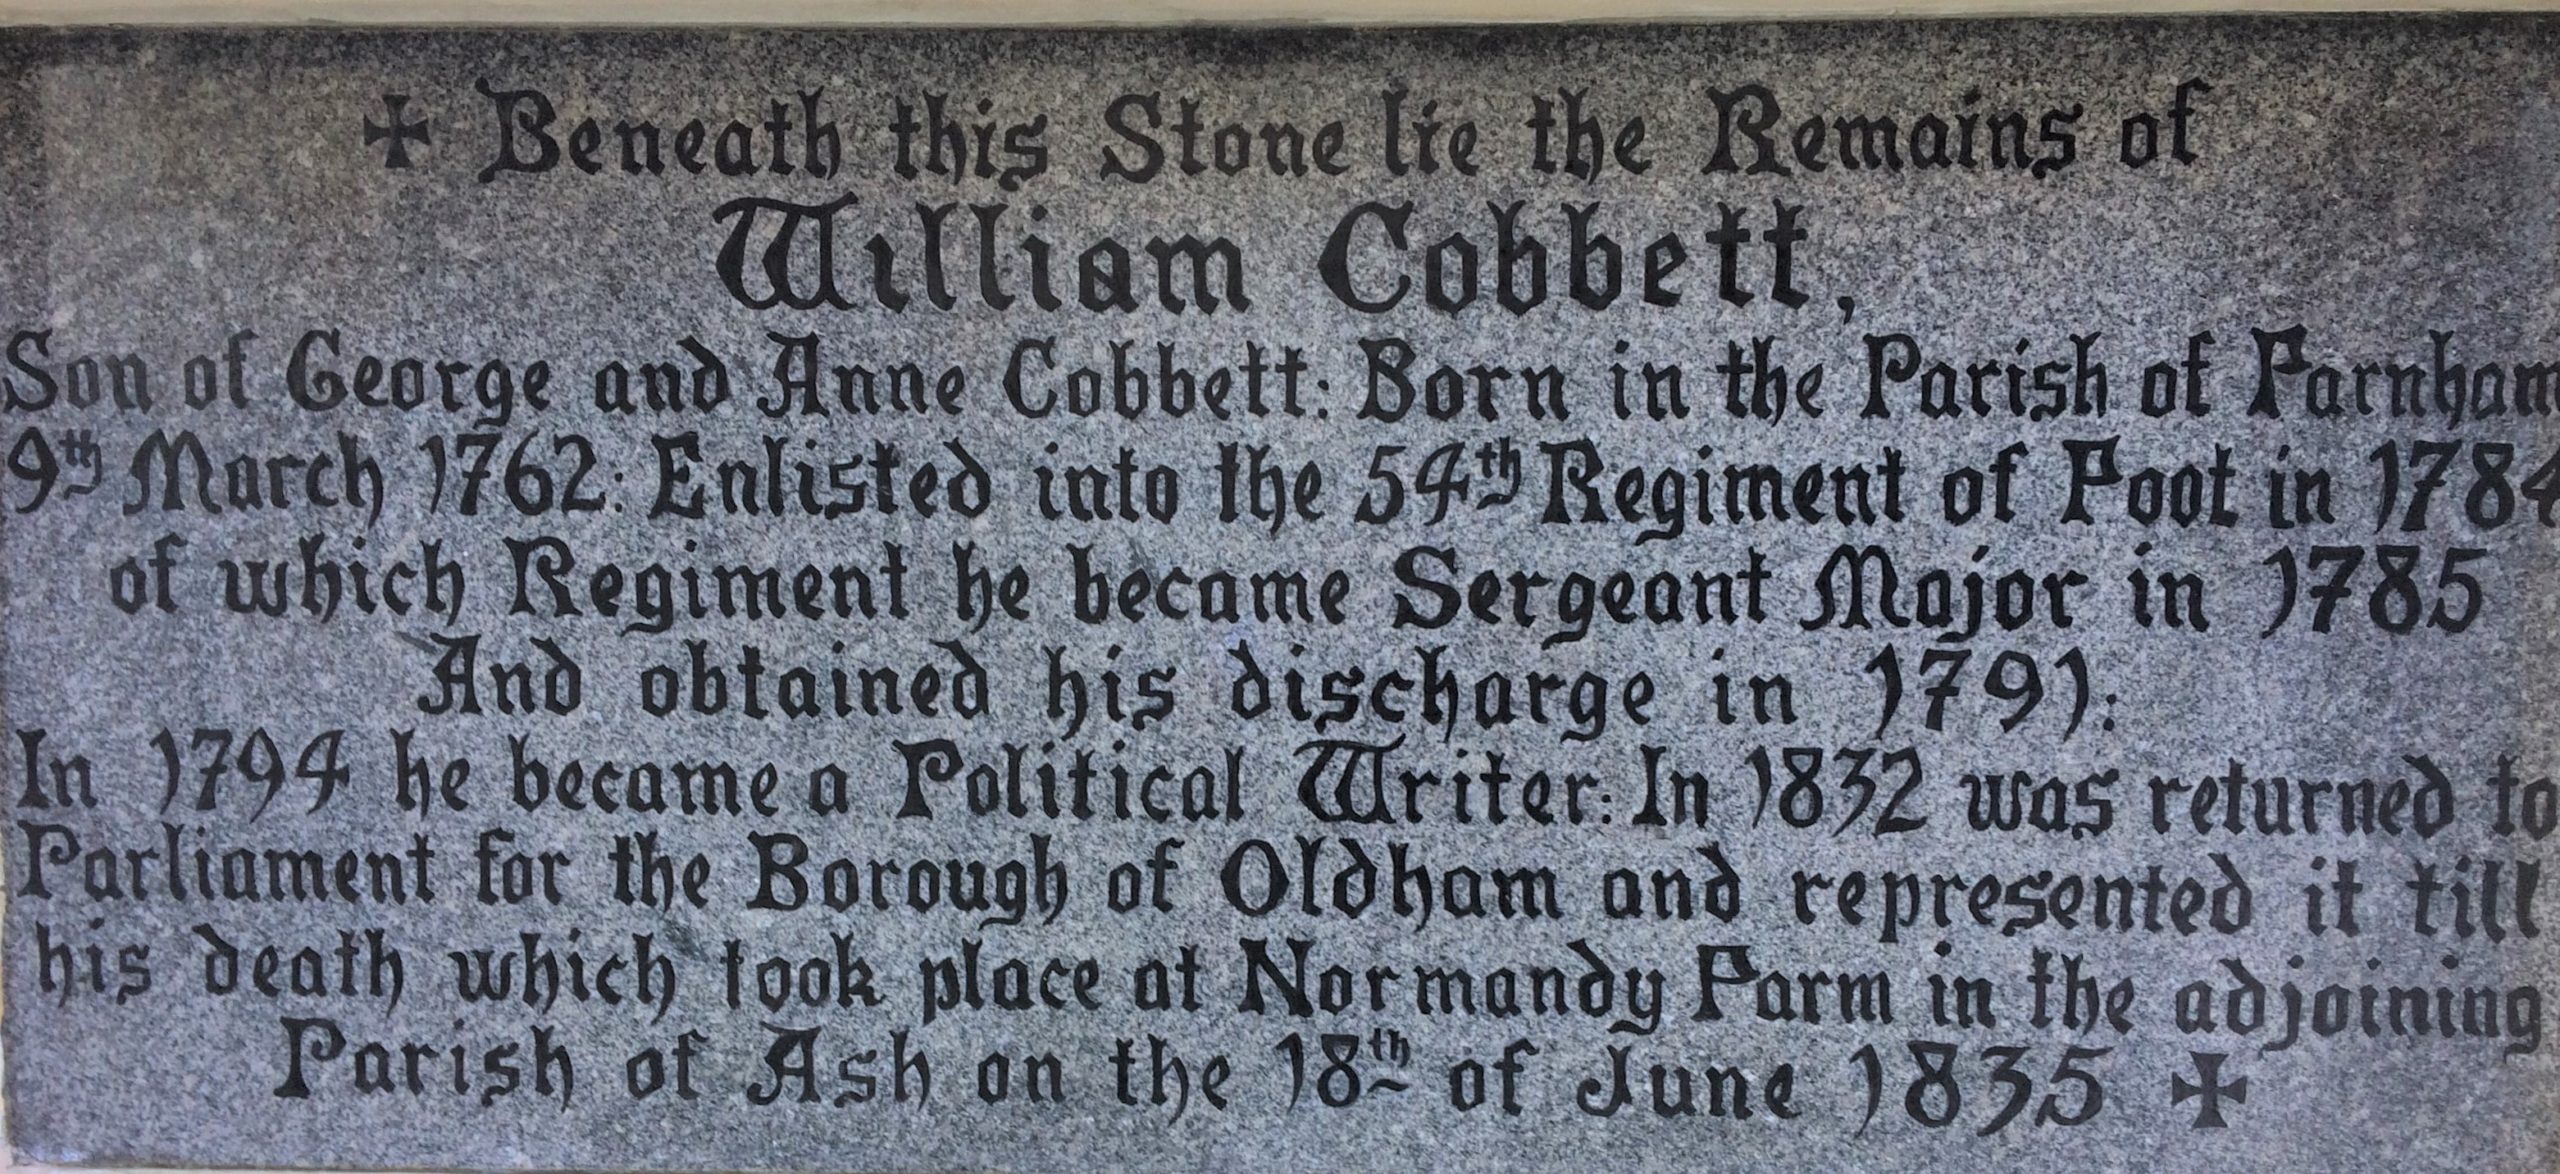 ✠ Beneath this Stone lie the Remains of
William Cobbett,
Son of George and Anne Cobbett: Born in the Parish of Farnham
9th March 1762: Enlisted into the 54th Regiment of Foot in 1784
of which Regiment he became Sergeant Major in 1785
And obtained his discharge in 1791:
In 1794 he became a Political Writer: In 1832 was returned to
Parliament for the Borough of Oldham and represented it till
his death which took place at Normandy Farm in the adjoining
Parish of Ash on the 18th of June 1835 ✠